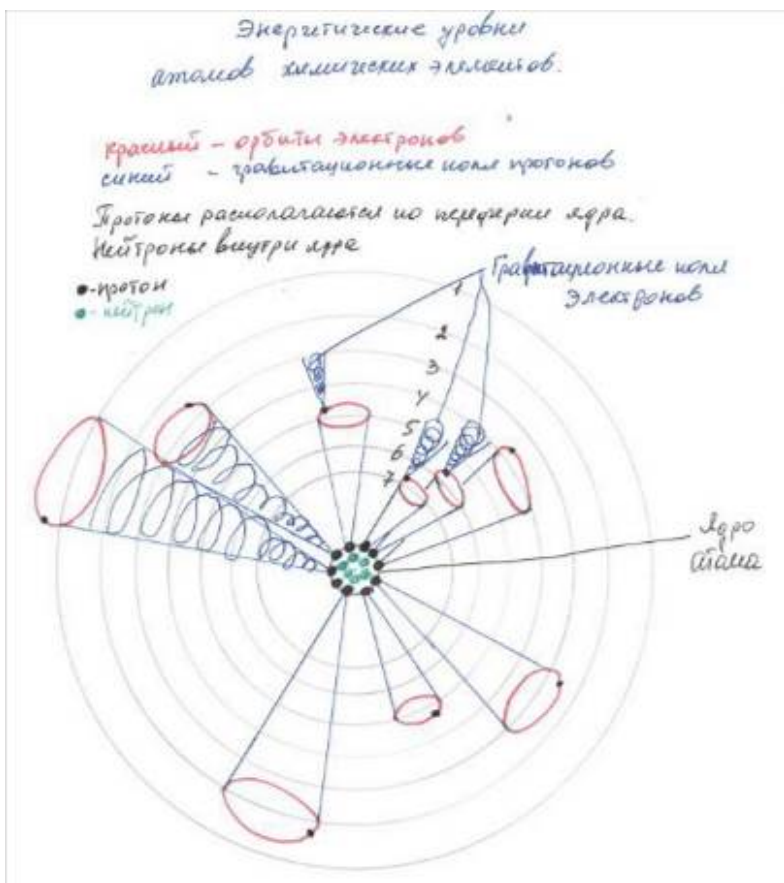 Энергетические уровни
атомов химических элементов.
красный - орбиты электронов
синий - гравитационные поля протонов
Протоны располагаются по переферии ядра.
Нейтроны внутри ядра
-протон
-нейтрон
Гравитационные поля
электронов
1
2
3
4
5
6
7
Ядро
атома